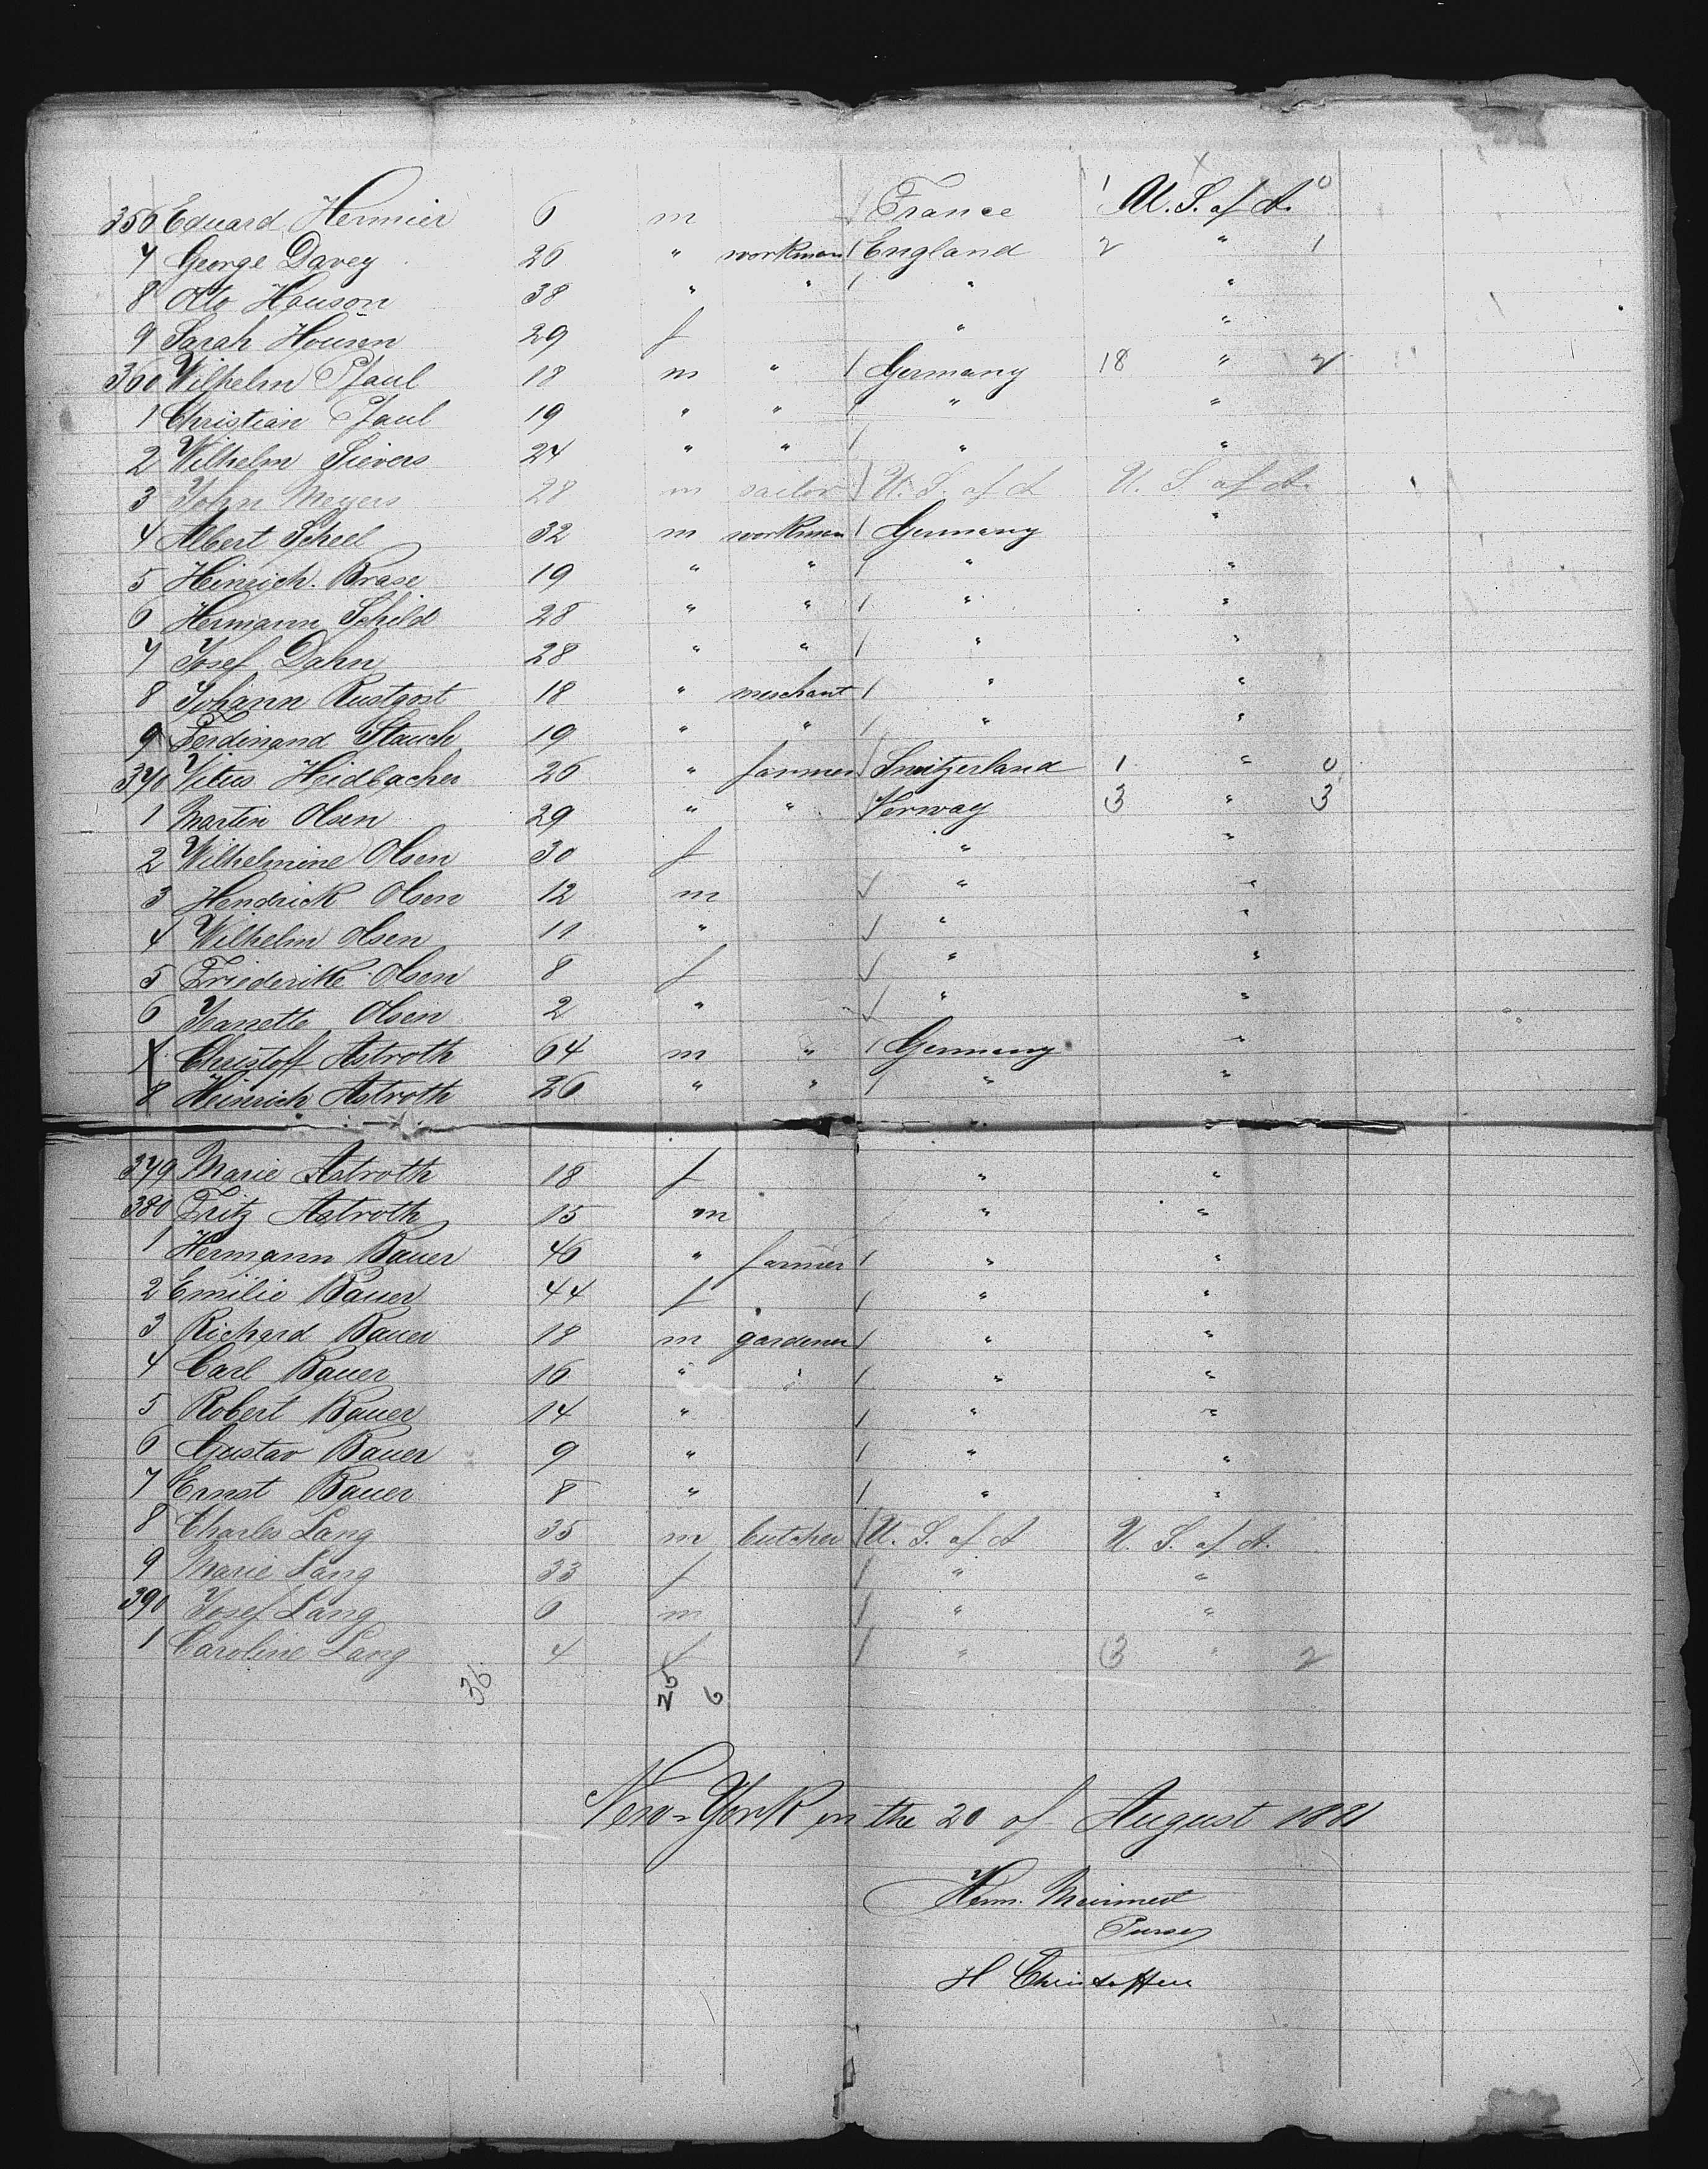 356 Eduard Hermier 6 m France 1 U. S. of A. 0
7 George Davey 26 " workman England 2 " 1
8 Otto Houson 38 " " " "
9 Sarah Housen 29 f " "
360 Wilhelm Pfaul 18 m " Germany 18 " 2
1 Christian Pfaul 19 " " " "
2 Wilhelm Sievers 24 " " " "
3 John Meyers 28 m sailor U. S. of A U. S. of A.
4 Albert Scheel 32 m workman Germany "
5 Heinrich. Brase 19 " " " "
6 Hermann Schild 28 " " " "
7 Josef Dahn 28 " " " "
8 Johann Rustgost 18 " merchant " "
9 Ferdinand Stauch 19 " " " "
370 Vitus Heidbacher 26 " farmer Switzerland 1 " 0
1 Martin Olsen 29 " " Norway 3 " 3
2 Wilhelmine Olsen 30 f " "
3 Hendrick Olsen 12 m " "
4 Wilhelm Olsen 11 " " "
5 Friederike Olsen 8 f " "
6 Jeanette Olsen 2 " " "
7 Christoff Astroth 64 m " Germany "
8 Heinrich Astroth 26 " " " "
379 Marie Astroth 18 f " "
380 Fritz Astroth 15 m " "
1 Hermann Bauer 46 " farmer " "
2 Emilie Bauer 44 f " "
3 Richard Bauer 18 m gardener " "
4 Carl Bauer 16 " " " "
5 Robert Bauer 14 " " "
6 Gustav Bauer 9 " " "
7 Ernst Bauer 8 " " "
8 Charles Lang 35 m butcher U. S. of A U. S. of A.
9 Marie Lang 33 f " "
390 Josef Lang 6 m " "
1 Caroline Lang 4 f " 3 " 2
36 25 6
New-York on the 20 of August 1881
Herm.
Purser
H Christoffers